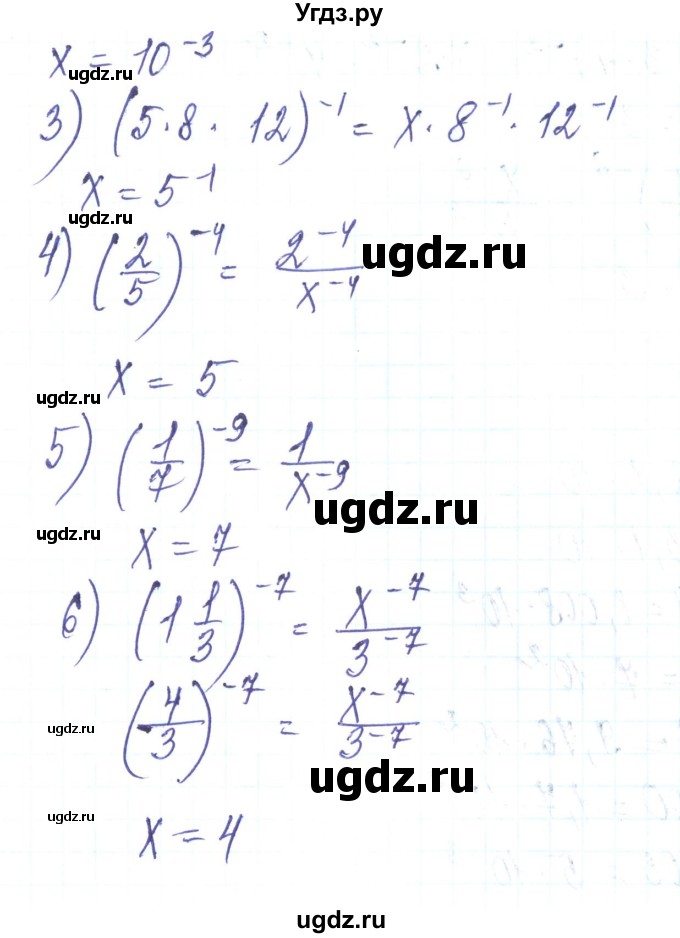 Угдз.ру
x = 10^-3
ugdz.ru
3) (5·8·12)^-1 = x·8^-1·12^-1
ugdz.ru
x = 5^-1
ugdz.ru
4) (2/5)^-4 = 2^-4/x^-4
ugdz.ru
x = 5
ugdz.ru
5) (1/7)^-9 = 1/x^-9
ugdz.ru
ugdz.ru
x = 7
6) (1 1/3)^-7 = x^-7/3^-7
(4/3)^-7 = x^-7/3^-7
ugdz.ru
ugdz.ru
ugdz.ru
x = 4
ugdz.ru